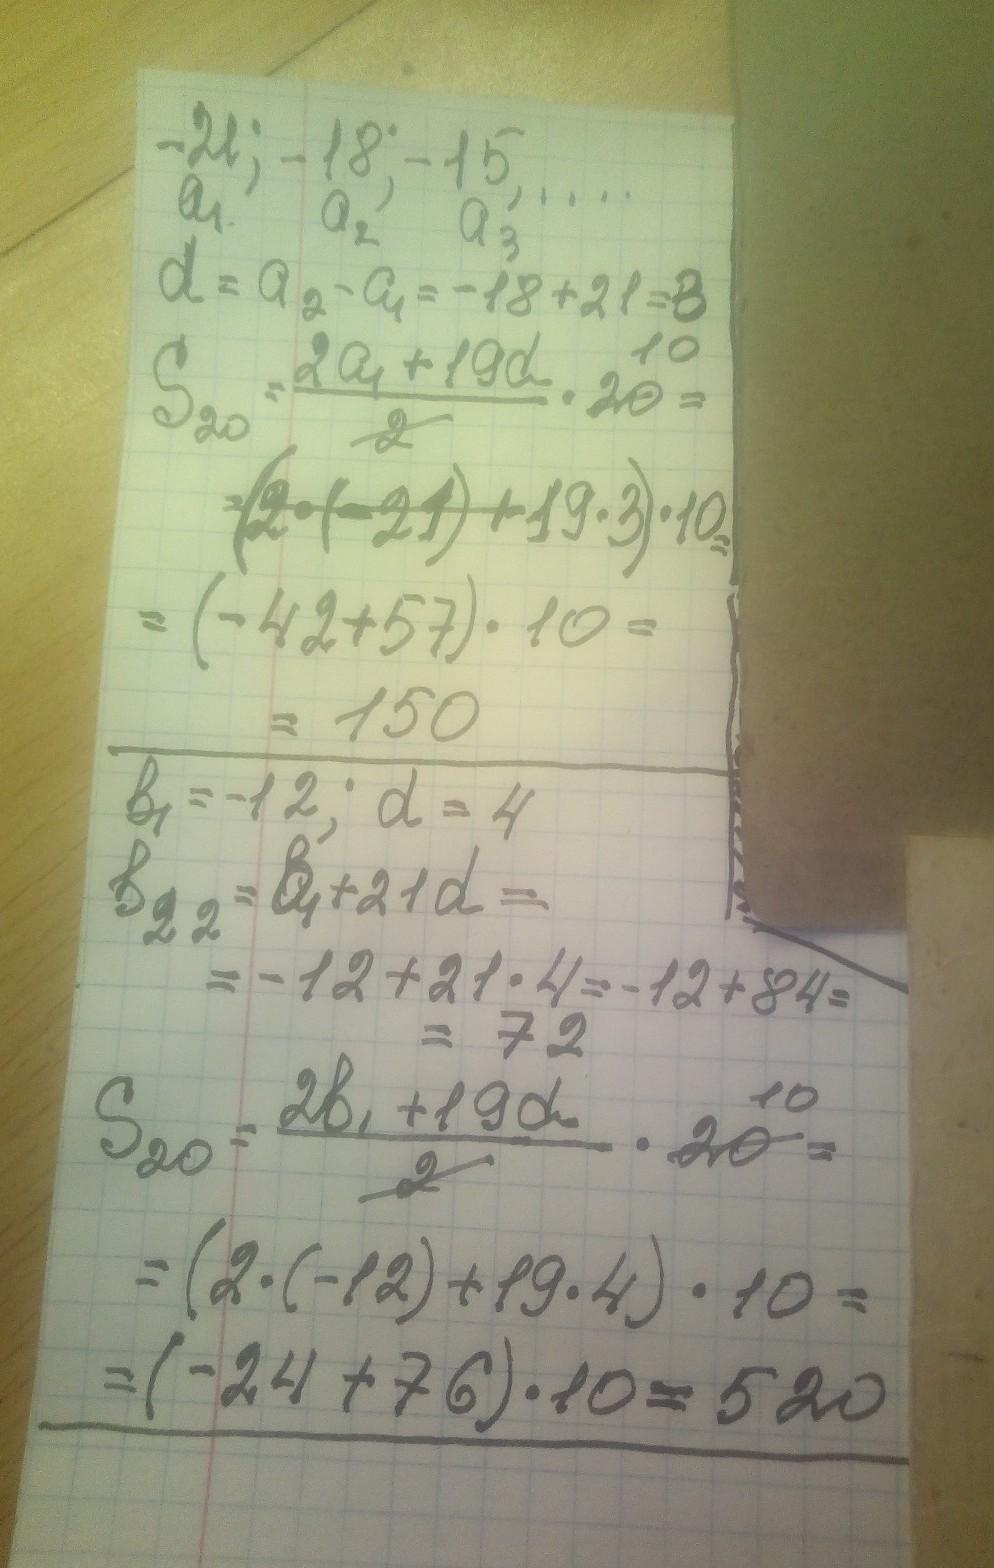 -21; -18; -15, .....
a₁ a₂ a₃
d = a₂ - a₁ = -18 + 21 = 3
S₂₀ = (2a₁ + 19d)/2 · 20 = 10
= (2 · (-21) + 19 · 3) · 10 =
= (-42 + 57) · 10 =
= 150
b₁ = -12; d = 4
b₂₂ = b₁ + 21d =
= -12 + 21 · 4 = -12 + 84 =
= 72
S₂₀ = (2b₁ + 19d)/2 · 20 = 10
= (2 · (-12) + 19 · 4) · 10 =
= (-24 + 76) · 10 = 520